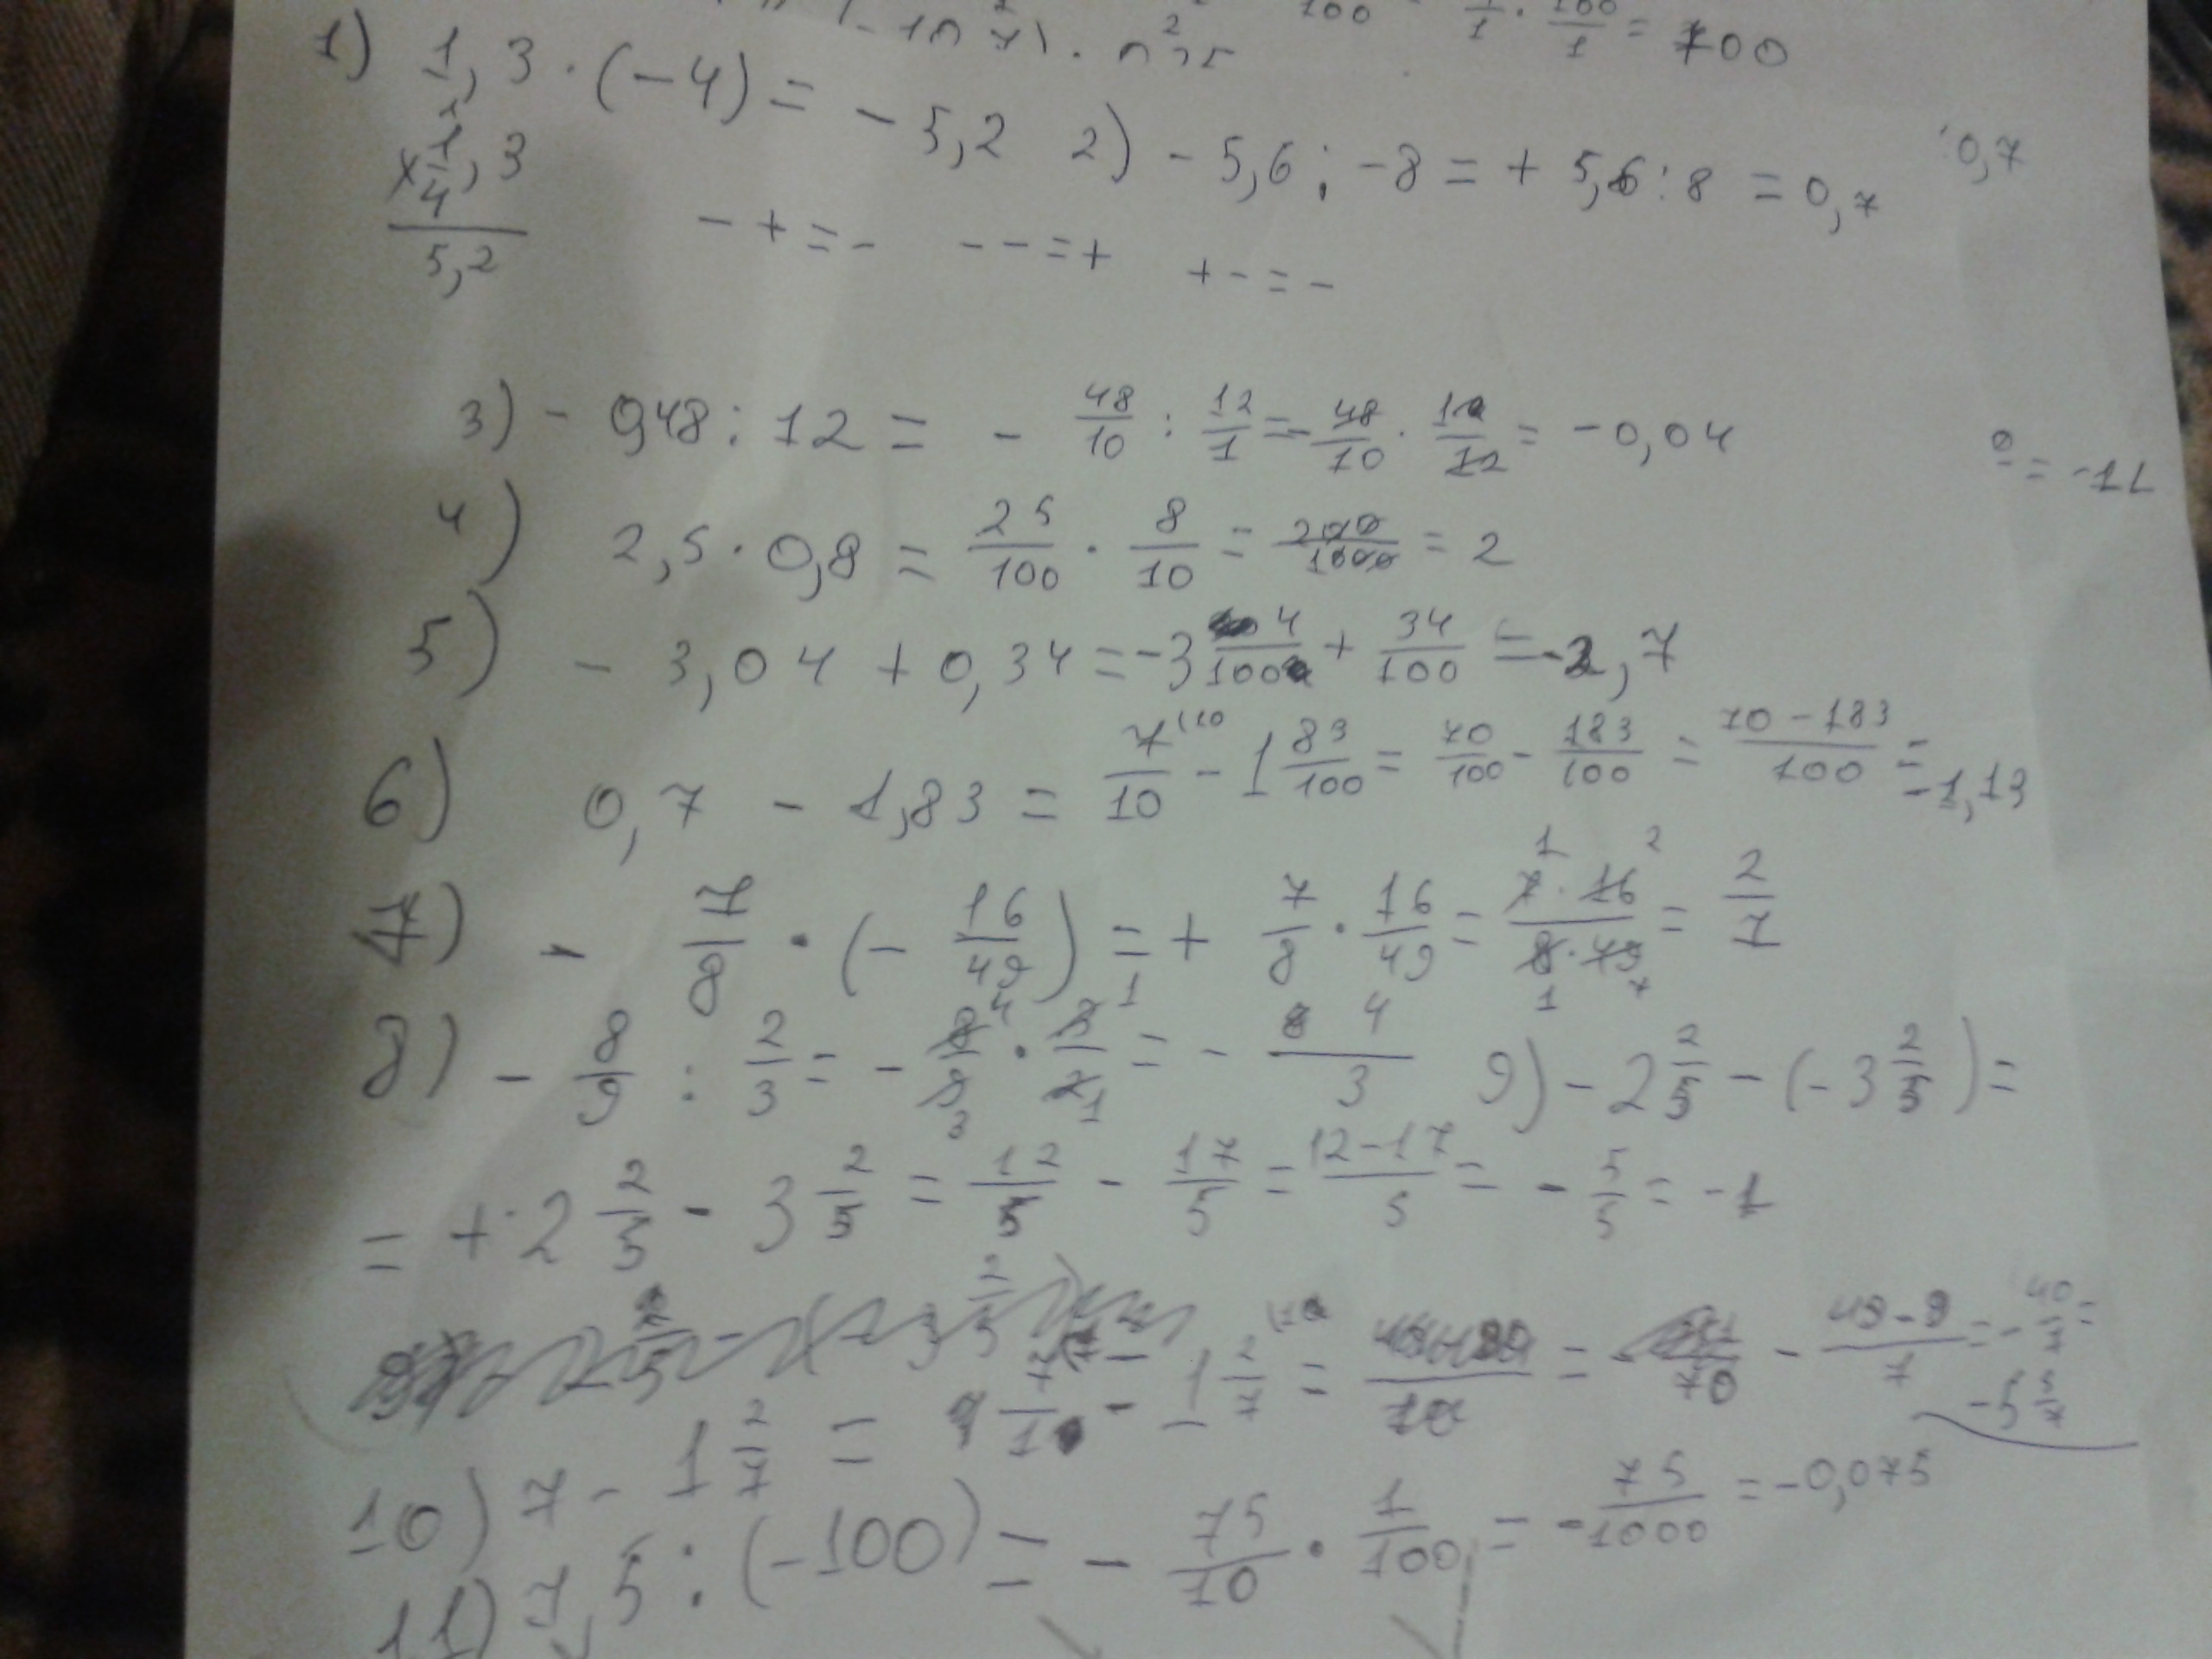 100 · 1/1 · 100/1 = 100
1) 1,3 · (-4) = -5,2 2) - 5,6 : -8 = + 5,6 : 8 = 0,7 0,7
× 1,3
4
5,2
- + = - - - = + + - = -
3) - 0,48 : 12 = - 48/10 : 12/1 = - 48/10 · 1/12 = -0,04
= -11
4) 2,5 · 0,8 = 25/100 · 8/10 = 200/1000 = 2
5) - 3,04 + 0,34 = -3 4/100 + 34/100 = -2,7
6) 0,7 - 1,83 = 7/10 (10 - 1 83/100 = 70/100 - 183/100 = 70-183/100 = -1,13
7) - 7/8 · (- 16/49) = + 7/8 · 16/49 = 7·16/8·49 = 2/7
8) - 8/9 : 2/3 = - 8/9 · 3/2 = - 4/3 9) - 2 2/5 - (- 3 2/5) =
= + 2 2/5 - 3 2/5 = 12/5 - 17/5 = 12-17/5 = - 5/5 = -1
10) 7 - 1 2/7 = 7/1 - 1 2/7 = - 49-9/7 = - 40/7 = -5 5/7
11) 7,5 : (-100) = - 75/10 · 1/100 = - 75/1000 = -0,075